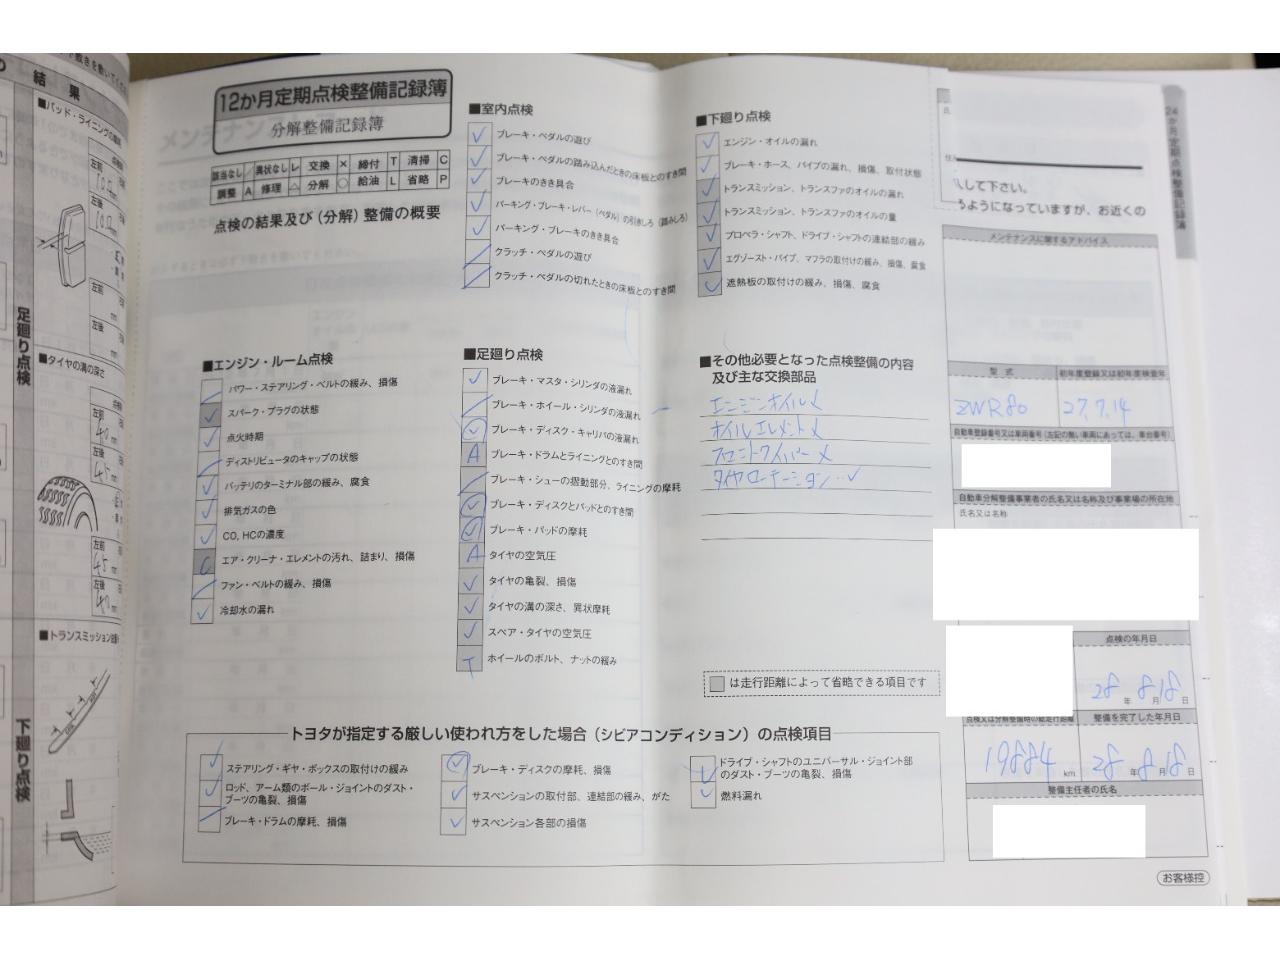 の 結 果
■パッド・ライニングの
左前
10.0
左前
左後
mm
足廻り点検
■タイヤの溝の深さ
左前
4.5 mm
左後
4.0 mm
■トランスミッション
下廻り点検
12か月定期点検整備記録簿
分解整備記録簿
該当なし / 異状なし レ 交換 × 締付 T 清掃 C
調整 A 修理 △ 分解 ○ 給油 L 省略 P
点検の結果及び（分解）整備の概要
■エンジン・ルーム点検
パワー・ステアリング・ベルトの緩み、損傷
スパーク・プラグの状態
点火時期
ディストリビュータのキャップの状態
バッテリのターミナル部の緩み、腐食
排気ガスの色
CO, HCの濃度
C エア・クリーナ・エレメントの汚れ、詰まり、損傷
ファン・ベルトの緩み、損傷
冷却水の漏れ
■室内点検
ブレーキ・ペダルの遊び
ブレーキ・ペダルの踏み込んだときの床板とのすき間
ブレーキのきき具合
パーキング・ブレーキ・レバー（ペダル）の引きしろ（踏みしろ）
パーキング・ブレーキのきき具合
クラッチ・ペダルの遊び
クラッチ・ペダルの切れたときの床板とのすき間
■足廻り点検
ブレーキ・マスタ・シリンダの液漏れ
ブレーキ・ホイール・シリンダの液漏れ
ブレーキ・ディスク・キャリパの液漏れ
A ブレーキ・ドラムとライニングとのすき間
ブレーキ・シューの摺動部分、ライニングの摩耗
ブレーキ・ディスクとパッドとのすき間
ブレーキ・パッドの摩耗
A タイヤの空気圧
タイヤの亀裂、損傷
タイヤの溝の深さ、異状摩耗
スペア・タイヤの空気圧
T ホイールのボルト、ナットの緩み
■下廻り点検
エンジン・オイルの漏れ
ブレーキ・ホース、パイプの漏れ、損傷、取付状態
トランスミッション、トランスファのオイルの漏れ
トランスミッション、トランスファのオイルの量
プロペラ・シャフト、ドライブ・シャフトの連結部の緩み
エグゾースト・パイプ、マフラの取付けの緩み、損傷、腐食
遮熱板の取付けの緩み、損傷、腐食
■その他必要となった点検整備の内容
及び主な交換部品
エンジンオイル ×
オイルエレメント ×
フロントワイパー ×
タイヤローテーション ✓
は走行距離によって省略できる項目です
トヨタが指定する厳しい使われ方をした場合（シビアコンディション）の点検項目
ステアリング・ギヤ・ボックスの取付けの緩み
ロッド、アーム類のボール・ジョイントのダスト・
ブーツの亀裂、損傷
ブレーキ・ドラムの摩耗、損傷
ブレーキ・ディスクの摩耗、損傷
サスペンションの取付部、連結部の緩み、がた
サスペンション各部の損傷
ドライブ・シャフトのユニバーサル・ジョイント部
のダスト・ブーツの亀裂、損傷
燃料漏れ
24か月定期点検整備記録簿
して下さい。
るようになっていますが、お近くの
メンテナンスに関するアドバイス
型 式
初年度登録又は初年度検査年
ZWR80
27.7.14
自動車登録番号又は車両番号（左記の無い車両にあっては、車台番号）
自動車分解整備事業者の氏名又は名称及び事業場の所在地
氏名又は名称
点検の年月日
28 年 8 月 18 日
点検又は分解整備時の総走行距離
整備を完了した年月日
19884 km
28 年 8 月 18 日
整備主任者の氏名
お客様控